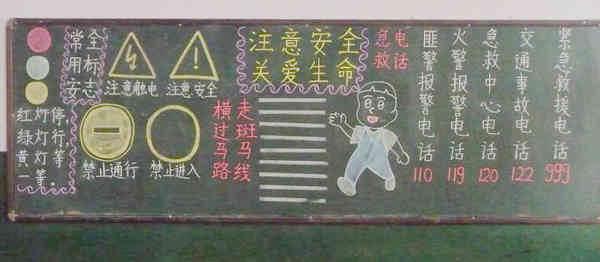 常用安全标志
注意触电
注意安全
红灯停，
绿灯行，
黄灯等
一等。
禁止通行
禁止进入
注意安全
关爱生命
横过马路
走斑马线
急救电话
匪警报警电话 110
火警报警电话 119
急救中心电话 120
交通事故电话 122
紧急救援电话 999